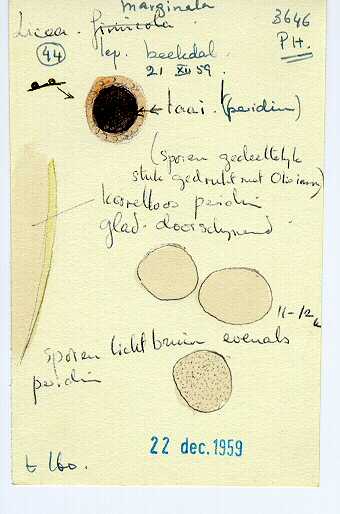 marginata
Licea fimicola
3646
P.H.
44
lep. beekdal.
21 XII 59.
taai. (peridium)
(sporen gedeeltelijk
stuk gedrukt met
korrelloos peridium
glad. doorschijnend
11-12 µ
sporen licht bruin evenals
peridium
22 dec. 1959
t 160.